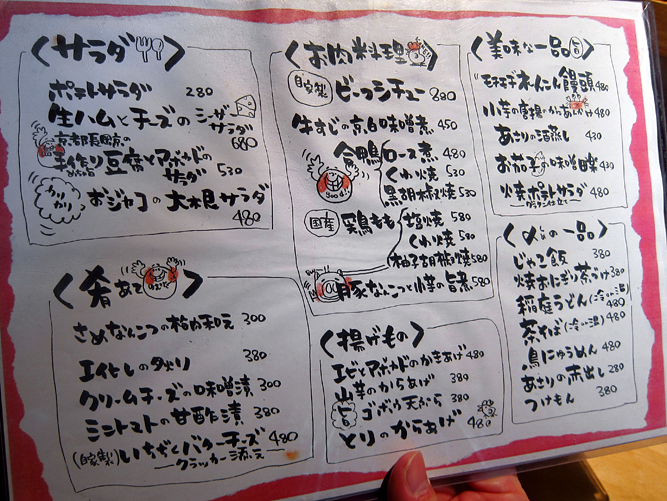 サラダ
ポテトサラダ 280
生ハムとチーズのシーザーサラダ 680
京都長岡京の
手作り豆腐とアボカドの
サラダ 530
カリカリ おジャコの大根サラダ
480
お肉料理
自家製 ビーフシチュー 880
牛すじの京白味噌煮 450
合鴨ロース煮 480
くわ焼 530
黒胡椒焼 530
good!
国産 鶏もも 塩焼 580
くわ焼 580
柚子胡椒焼 580
豚なんこつと小芋の旨煮 580
美味な一品
モチモチれんこん饅頭 480
小芋の唐揚 480
あさりの酒蒸し 430
お茄子の味噌田楽 430
焼ポテトサラダ 480
グラタン仕立て
〆の一品
じゃこ飯 380
焼おにぎり茶づけ 380
稲庭うどん(冷 or 温) 480
茶そば(冷 or 温) 480
鳥にゅうめん 480
あさりの赤出し 280
つけもん 380
肴あて
さめなんこつの梅肉和え 300
エイヒレのタタリ 380
クリームチーズの味噌漬 300
ミニトマトの甘酢漬 380
(自家製)いちぢくバターチーズ 480
クラッカー添え
揚げもの
エビとアボカドのかきあげ 480
山芋のからあげ 380
ゴボウ天ぷら 380
とりのからあげ 480